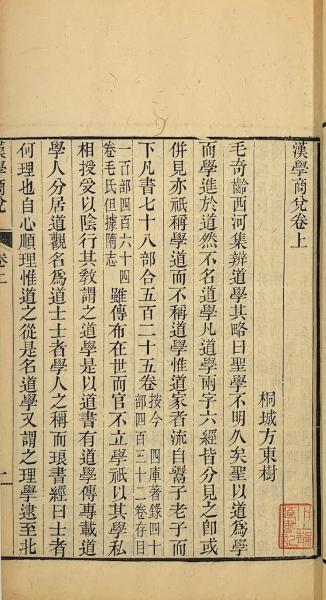 漢學商兌卷上
桐城方東樹
毛奇齡西河集辨道學其略曰聖學不明久矣聖以道為學
而學進於道然不名道學凡道學兩字六經皆分見之即或
併見亦祇稱學道而不稱道學惟道家者流自鬻子老子而
下凡書七十八部合五百二十五卷按今四庫著錄四十
部四百三十二卷存目
一百部四百六十四
卷毛氏但據隋志雖傳布在世而官不立學祇以其學私
相授受以陰行其教謂之道學是以道書有道學傳專載道
學人分居道觀名為道士士者學人之稱而琅書經曰士者
何理也自心順理惟道之從是名道學又謂之理學逮至北
漢學商兌
卷上
一